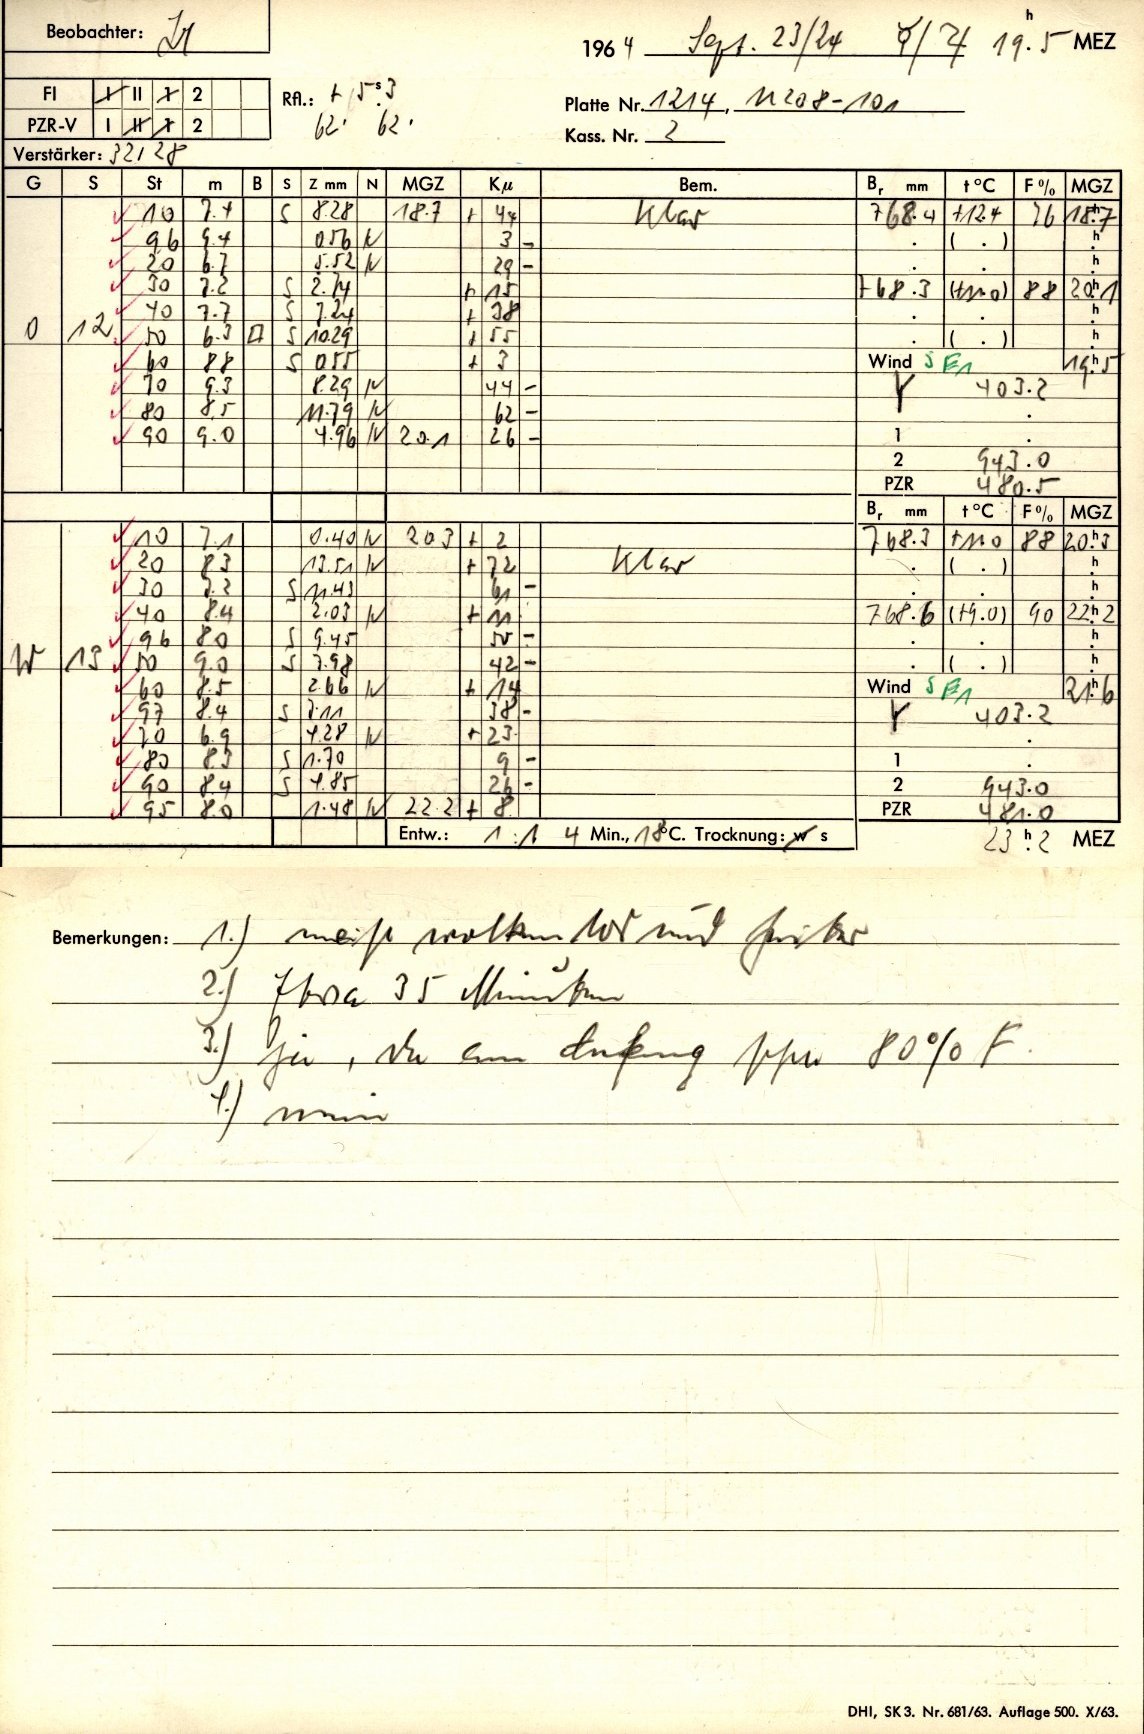 Beobachter:
1964 Sept. 23/24 ☿/♃ 19h.5 MEZ
FI I II 1 2
Rfl.: + 5s.3
Platte Nr. 1214, 11208-101
PZR-V I II 1 2
62. 62.
Kass. Nr. 2
Verstärker: 32128
G S St m B S Z mm N MGZ Kμ Bem. Br mm t °C F % MGZ
10 7.4 S 8.28 18.7 + 44 Klar 768.4 +12.4 76 18h.7
96 9.4 0.56 N 3 - . ( . ) h.
20 6.7 5.52 N 29 - . . h.
30 7.2 S 2.74 + 15 768.3 (+11.0) 88 20h.1
40 7.7 S 7.24 + 38 . . h.
O 12 50 6.3 S 10.29 + 55 . ( . ) h.
60 8.8 S 0.55 + 3 Wind SE1 19h.5
70 9.3 8.29 N 44 - 403.2
80 8.5 11.79 N 62 - .
90 9.0 4.96 N 20.1 26 - 1 .
2 943.0
PZR 480.5
Br mm t °C F % MGZ
10 7.1 0.40 N 20.3 + 2 768.3 +11.0 88 20h.3
20 8.3 13.51 N + 72 Klar . ( . ) h.
30 7.2 S 11.43 61 - . . h.
40 8.4 2.03 N + 11 768.6 (+9.0) 90 22h.2
96 8.0 S 9.45 50 - . . h.
W 13 50 9.0 S 7.98 42 - . ( . ) h.
60 8.5 2.66 N + 14 Wind SE1 21h.6
97 8.4 S 7.11 38 - 403.2
70 6.9 4.28 N + 23 .
80 8.3 S 1.70 9 - 1 .
90 8.4 S 4.85 26 - 2 943.0
95 8.0 1.48 N 22.2 + 8 PZR 481.0
Entw.: 1:1 4 Min., 18°C. Trocknung: w s 23h.2 MEZ
Bemerkungen: 1.) meist wolkenlos und heiter
2.) Etwa 35 Minuten
3.) ja, da am Anfang schon 80% F.
4.) nein
DHI, SK 3. Nr. 681/63. Auflage 500. X/63.